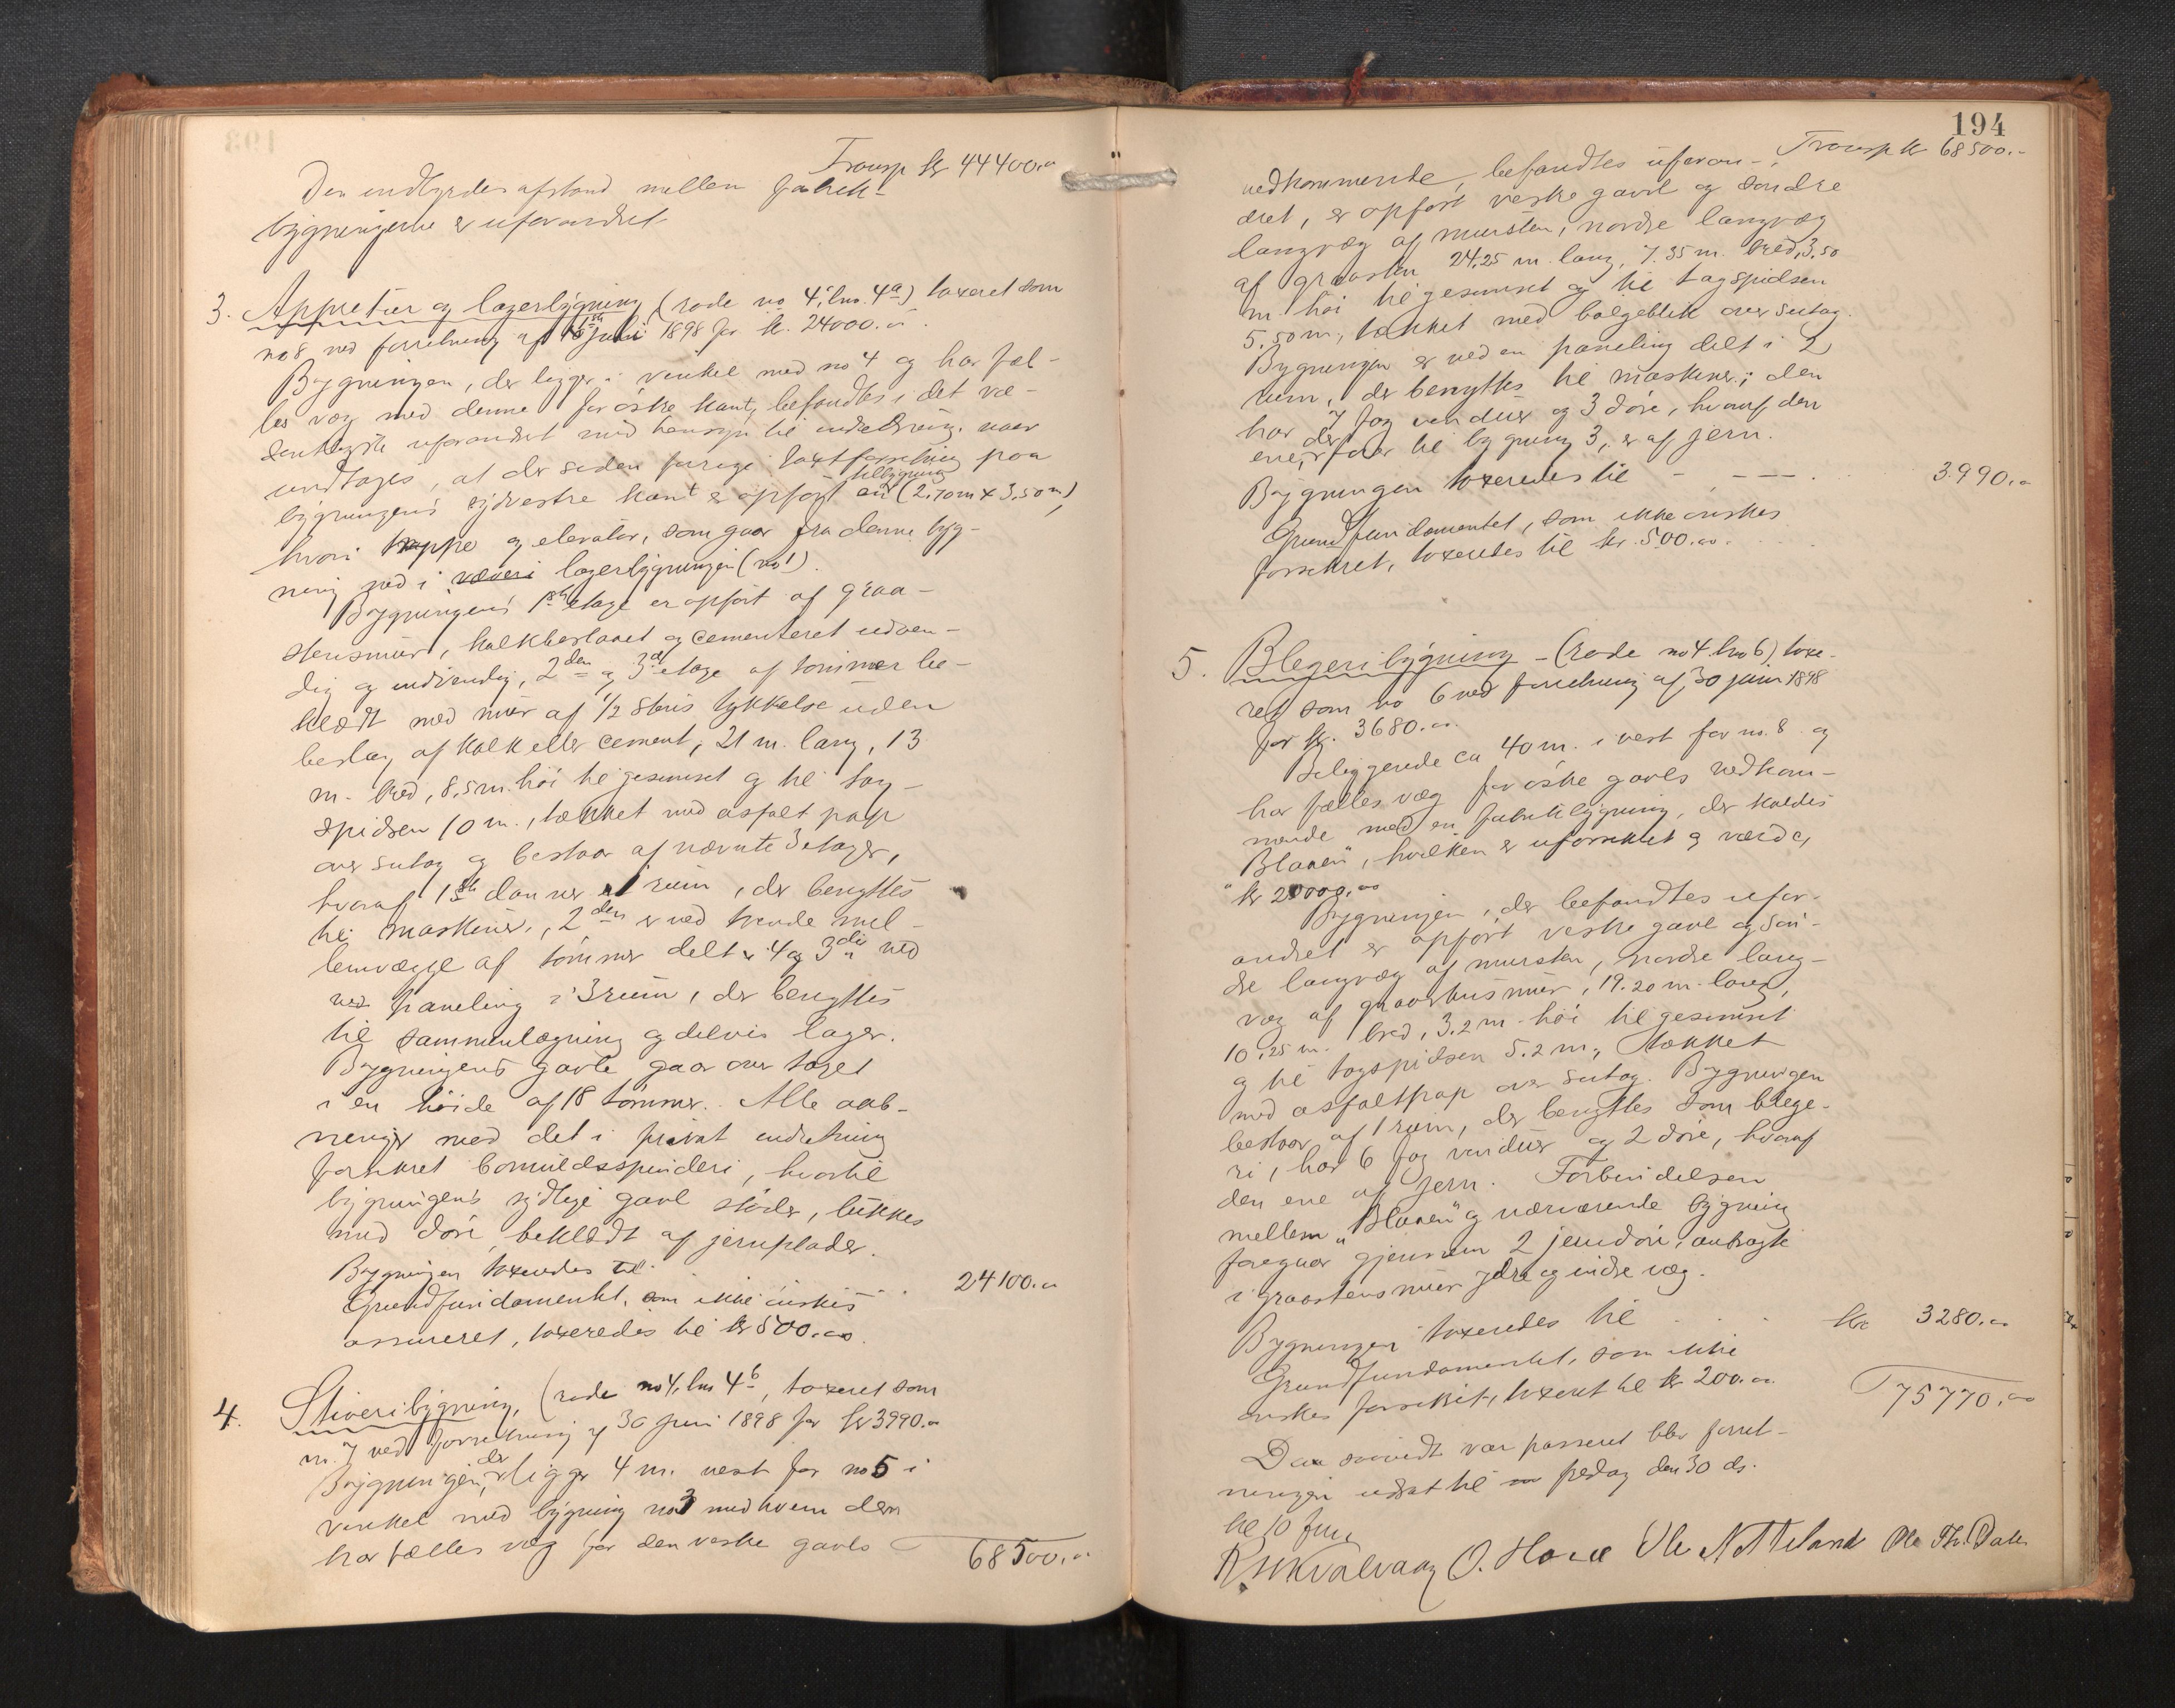 Transp kr 44400.00
Den indbyrdes afstand mellem fabrik-
bygningerne er uforandret
3. Appretur og lagerbygning (rode no 4, hus. 4a) taxeret som
no 8 ved forretning af 1ste juli 1898 for kr. 24000.00.
Bygningen, der ligger i vinkel med no 4 og har fæl-
les væg med denne for østre kant, befandtes i det væ-
sentligste uforandret med hensyn til indredning, naar
undtages, at der siden forrige taxtforretning paa
bygningens sydvestre kant er opført en tilbygning (2.70 m x 3.50 m),
hvori trappe og elevator, som gaar fra denne byg-
ning ned i væveri lagerbygningen (no 1).
Bygningens 1ste etage er opført af graa-
stensmur, kalkbeslaaet og cementeret udven-
dig og indvendig, 2den og 3de etage af tømmer be-
klædt med mur af 1/2 stens tykkelse uden
beslag af kalk eller cement, 21 m. lang, 13
m. bred, 8.5 m. høi til gesimset og til tag-
spidsen 10 m., tækket med asfalt pap
over sutag og bestaar af nævnte 3 etager,
hvoraf 1ste danner 1 rum, der benyttes
til maskiner, 2den er ved trende mel-
lemvægge af tømmer delt i 4 og 3die ved
ved paneling i 3 rum, der benyttes
til sammenlægning og delvis lager.
Bygningens gavle gaar over taget
i en høide af 18 tommer. Alle aab-
ninger med det i privat indretning
forsikret bomuldsspinderi, hvortil
bygningens sydlige gavl støder, lukkes
med døre, beklædt af jernplader.
Bygningen taxeredes til . . 24100.00
Grundfundamentet, som ikke ønskes
assureret, taxeredes til kr 500.00.
4. Stiveribygning, (rode no 4, hus 4b, taxeret som
no. 7 ved forretning af 30 juni 1898 for kr 3990.00
Bygningen, der ligger 4 m. vest for no 5 i
vinkel med bygning no 3 med hvem den
har fælles væg for den vestre gavls
68500.00
194
Transp kr 68500.-
vedkommende, befandtes uforan-
dret, er opført vestre gavl og søndre
langvæg af mursten, nordre langvæg
af graasten 24.25 m. lang, 7.35 m. bred, 3.50
m. høi til gesimset og til tagspidsen
5.50 m., tækket med bølgeblik over sutag.
Bygningen er ved en paneling delt i 2
rum, der benyttes til maskiner; den
har 7 fag vinduer og 3 døre, hvoraf den
ene, der fører til bygning 3, er af jern.
Bygningen taxeredes til - - - - . 3990.00
Grundfundamentet, som ikke ønskes
forsikret, taxeredes til kr. 500.00.
5. Blegeribygning - (rode no 4 hus 6) taxe-
ret som no 6 ved forretning af 30 juni 1898
for kr. 3680.00.
Beliggende ca 40 m. i vest for no. 8 og
har fælles væg for østre gavls vedkom-
mende med en fabrikbygning, der kaldes
"Blaaen", hvilken er uforsikret og værd ca
kr 20000.00
Bygningen, der befandtes ufor-
andret er opført vestre gavl og søn-
dre langvæg af mursten, nordre lang-
væg af graastensmur, 19.20 m. lang,
10.25 m. bred, 3.2 m. høi til gesimset
og til tagspidsen 5.2 m., tækket
med asfaltpap over sutag. Bygningen
bestaar af 1 rum, der benyttes som blege-
ri, har 6 fag vinduer og 2 døre, hvoraf
den ene af jern. Forbindelsen
mellem "Blaaen" og nærværende bygning
foregaar gjennem 2 jerndøre, anbragte
i graastensmur ydre og indre væg.
Bygningen taxeredes til . . . kr 3280.00
Grundfundamentet, som ikke
ønskes forsikret, taxeret til kr 200.00.
75770.00
Da saavidt var passeret blev forret-
ningen udsat til fredag den 30 ds.
kl 10 form
R. Kvalvaag O. Hove Ole Natteland Ole Th. Dale